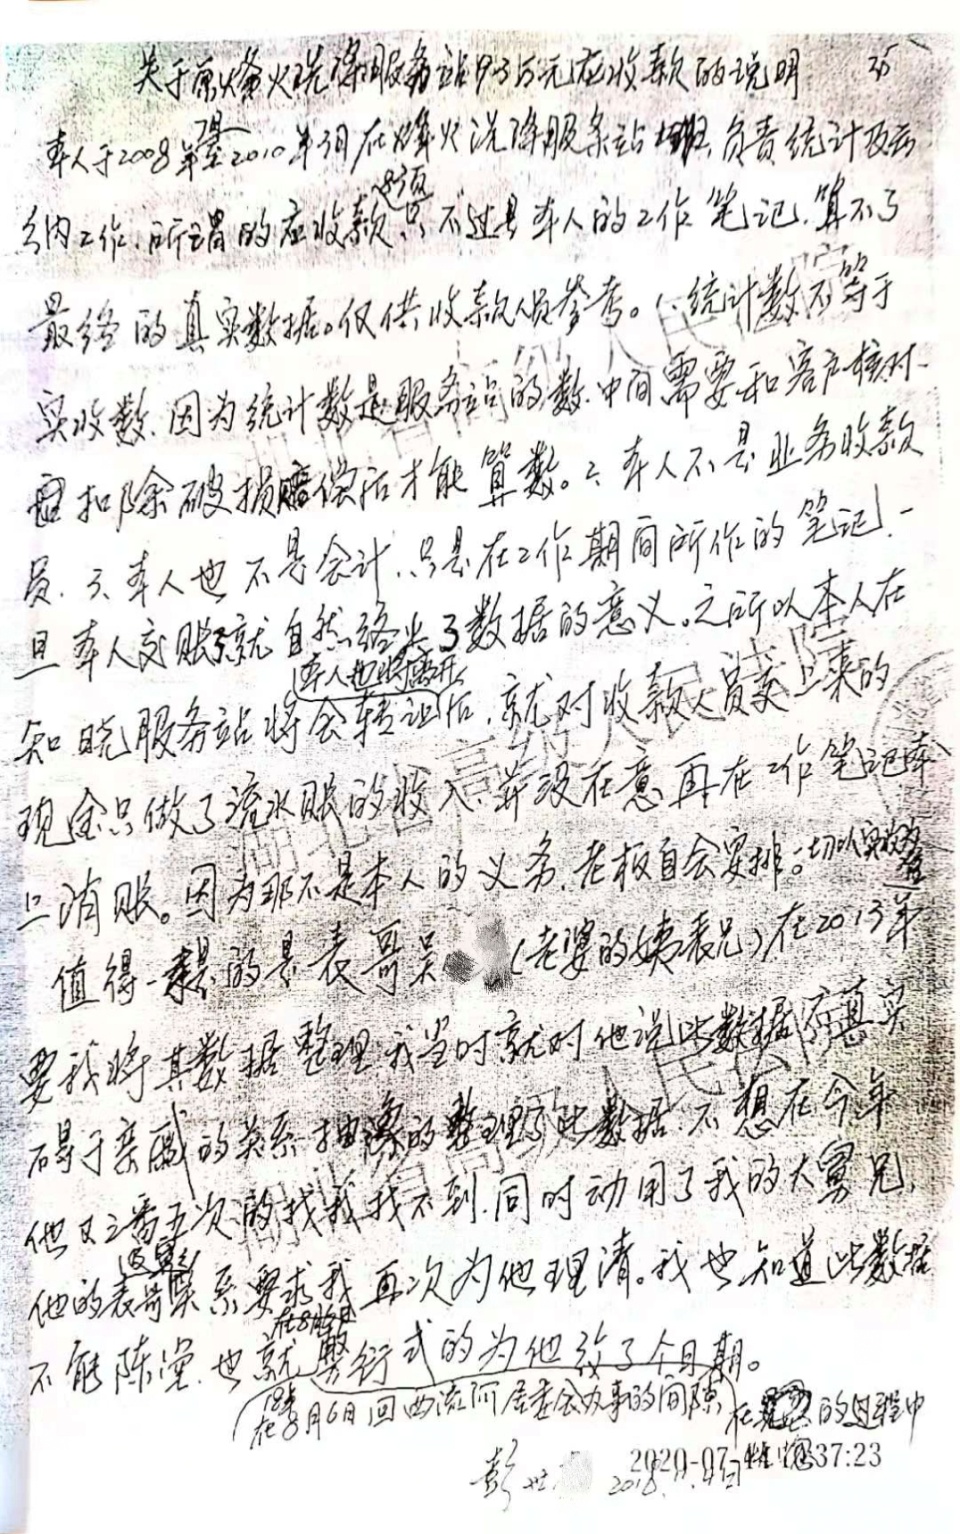 关于原烽火洗涤服务站93万元应收款的说明 35
7月
本人于2008年至2010年3月在烽火洗涤服务站上班,负责统计及出
纳工作,所谓的应收款只不过是本人的工作笔记,算不了
最终的真实数据。仅供收款人员参考。1、统计数不等于
实收数,因为统计数是服务站的数,中间需要和客户核对
扣除破损赔偿后才能算数。2、本人不是业务收款
员,3、本人也不是会计,只是在工作期间所作的笔记,一
旦本人交账就自然络失了数据的意义。之所以本人在
(本人也将离开)
知晓服务站将会转让后,就对收款人员交上来的
现金只做了流水账的收入,并没在意再在工作笔记本
上消账。因为那不是本人的义务,老板自会安排。一切以实收为
值得一提的是表哥吴 (老婆的姨表兄)在2013年
要我将其数据整理,我当时就对他说此数据不真实
碍于亲戚的关系抽象的整理了此数据,不想在今年
他又三番五次的找我找不到,同时动用了我的大舅兄,
他的表哥 关系要求我再次为他理清。我也知道此数据
在8月6日
不能陈堂,也就敷衍式的为他改了个日期。
18年
在8月6日回西流河居委会办事的间隙 在 的过程中
彭世 2018.11.4日
2020-07 37:23
湖北省高级人民法院